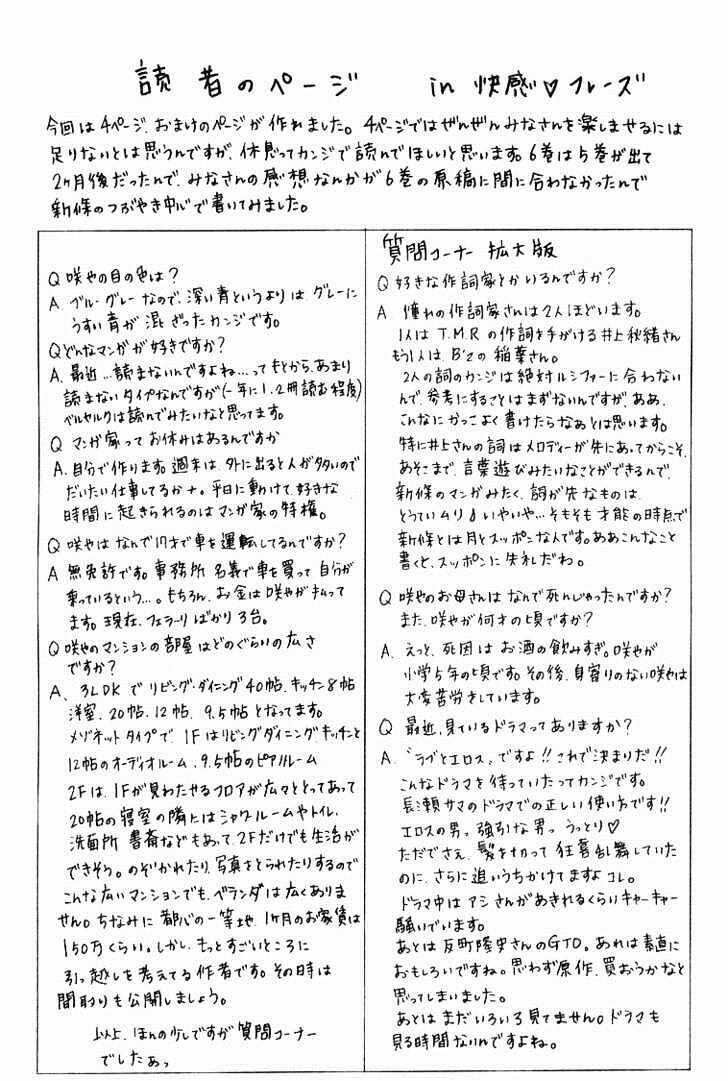 読者のページ in 快感♡フレーズ
今回は4ページ、おまけのページが作れました。4ページではぜんぜんみなさんを楽しませるには
足りないとは思うんですが、休息ってカンジで読んでほしいと思います。6巻は5巻が出て
2ヶ月後だったんで、みなさんの感想なんかが6巻の原稿に間に合わなかったんで
新條のつぶやき中心で書いてみました。
Q 咲也の目の色は?
A. ブルーグレーなので、深い青というよりはグレーに
うすい青が混ざったカンジです。
Q どんなマンガが好きですか?
A. 最近…読まないんですよね…ってもとから、あまり
読まないタイプなんですが(一年に1、2冊読む程度)
ベルセルクは読んでみたいなと思ってます。
Q マンガ家ってお休みはあるんですか
A. 自分で作ります。週末は、外に出ると人が多いので
だいたい仕事してるかナ。平日に動けて、好きな
時間に起きられるのはマンガ家の特権。
Q 咲也はなんで17才で車を運転してるんですか?
A 無免許です。事務所名義で車を買って自分が
乗っているという…。もちろん、お金は咲也が払って
ます。現在、フェラーリばかり3台。
Q 咲也のマンションの部屋はどのぐらいの広さ
ですか?
A、3LDKでリビング・ダイニング40帖、キッチン8帖
洋室、20帖、12帖、9.5帖となってます。
メゾネットタイプで、1Fはリビングダイニングキッチンと
12帖のオーディオルーム、9.5帖のピアノルーム
2Fは、1Fが見わたせるフロアが広々ととってあって
20帖の寝室の隣にはシャワールームやトイレ、
洗面所、書斎などもあって、2Fだけでも生活が
できそう。のぞかれたり、写真をとられたりするので
こんな広いマンションでも、ベランダは広くありま
せん。ちなみに都心の一等地、1ヶ月のお家賃は
150万くらい。しかし、もっとすごいところに
引っ越しを考えてる作者です。その時は
間取りも公開しましょう。
以上、ほんの少しですが質問コーナー
でしたぁっ
質問コーナー 拡大版
Q 好きな作詞家とかいるんですか?
A 憧れの作詞家さんは2人ほどいます。
1人はT.M.Rの作詞を手がける井上秋緒さん
もう1人はB'zの稲葉さん。
2人の詞のカンジは絶対ルシファーに合わない
んで、参考にすることはまずないんですが、ああ、
こんなにかっこよく書けたらなぁとは思います。
特に井上さんの詞はメロディーが先にあってからこそ、
あそこまで、言葉遊びみたいなことができるんで、
新條のマンガみたく、詞が先なものは、
とうていムリ♪いやいや…そもそも才能の時点で
新條とは月とスッポンなんです。ああこんなこと
書くと、スッポンに失礼だわ。
Q 咲也のお母さんはなんで死んじゃったんですか?
また、咲也が何才の頃ですか?
A. えっと、死因はお酒の飲みすぎ。咲也が
小学5年の頃です。その後、身寄りのない咲也は
大変苦労をしています。
Q 最近、見ているドラマってありますか?
A. “ラブとエロス”ですよ!!これで決まりだ!!
こんなドラマを待っていたってカンジです。
長瀬サマのドラマでの正しい使い方です!!
エロスの男っ強引な男っうっとり♡
ただでさえ、髪を切って狂喜乱舞していた
のに、さらに追いうちかけてますよコレ。
ドラマ中はアシさんがあきれるくらいキャーキャー
騒いでいます。
あとは反町隆史さんのGTO。あれは素直に
おもしろいですね。思わず原作、買おうかなと
思ってしまいました。
あとはまだいろいろ見てません。ドラマも
見る時間ないんですよね。